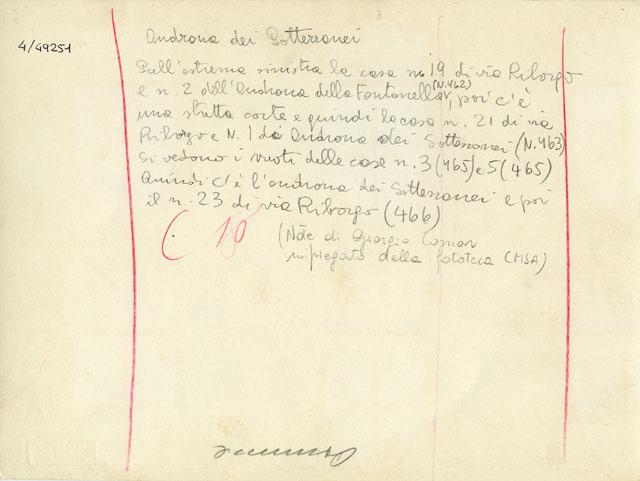 4/49251
Androna dei Sotterranei
Sull'estrema sinistra la casa n. 19 di via Riborgo
e n. 2 dell'Androna della Fontanella (N.462), poi c'è
una stretta corte e quindi la casa n. 21 di via
Riborgo e N. 1 di Androna dei Sotterranei (N.463)
Si vedono i vuoti delle case n. 3 (465) e 5 (465)
Quindi c'è l'androna dei Sotterranei e poi
il n. 23 di via Riborgo (466)
C. 10
(Note di Giorgio
impiegato della fototeca CMSA)